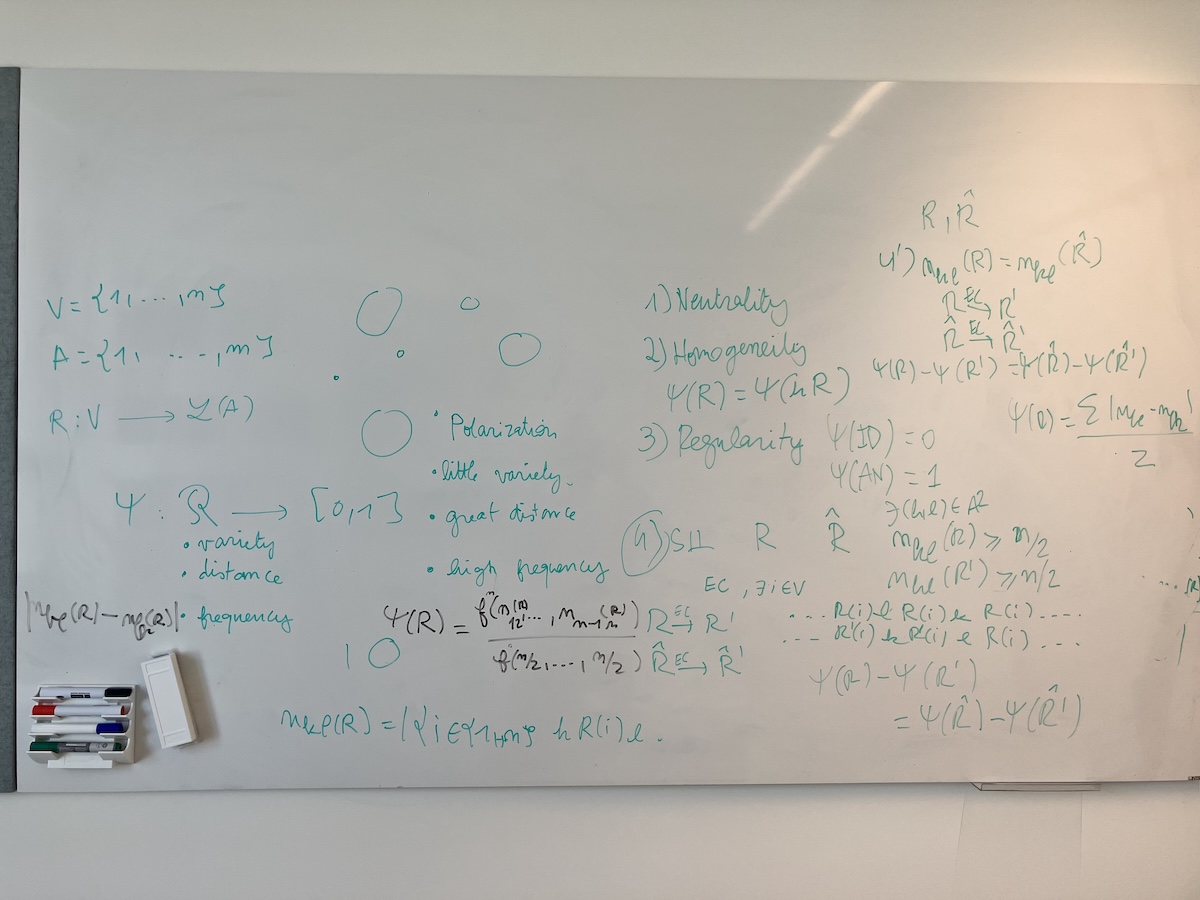 V = {1, ..., n}
A = {1, ..., m}
R : V → ℒ(A)
Ψ : ℛ → [0,1]
• variety
• distance
• frequency
|n_kl(R) - n_lk(R)|
• Polarization
• little variety
• great distance
• high frequency
Ψ(R) =
f(n/2, ..., n/2)
n_kl(R) = |{i ∈ {1,..,n} k R(i) l .
1) Neutrality
2) Homogeneity
Ψ(R) = Ψ(kR)
3) Regularity Ψ(ID) = 0
Ψ(AN) = 1
4) R R̂
EC, ∃ i ∈ V
R →EC R'
R̂ →EC R̂'
∃(k,l) ∈ A²
n_kl(R) ≥ n/2
n_kl(R') ≥ n/2
... R(i) l R(i) k R(i) ...
... R'(i) k R'(i) l R(i) ...
Ψ(R) - Ψ(R')
= Ψ(R̂) - Ψ(R̂')
R, R̂
4') n_kl(R) = n_kl(R̂)
R →EC R'
R̂ →EC R̂'
Ψ(R) - Ψ(R') = Ψ(R̂) - Ψ(R̂')
Ψ(R) = Σ |n_kl - n_lk|
2